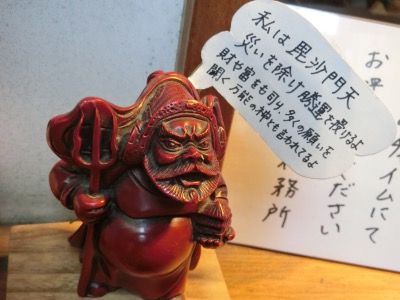 私は毘沙門天
災いを除け勝運を授けるよ
財や富をも司り多くの願いを
聞く万能の神とも言われてるよ
お
イムにて
ださい
務所